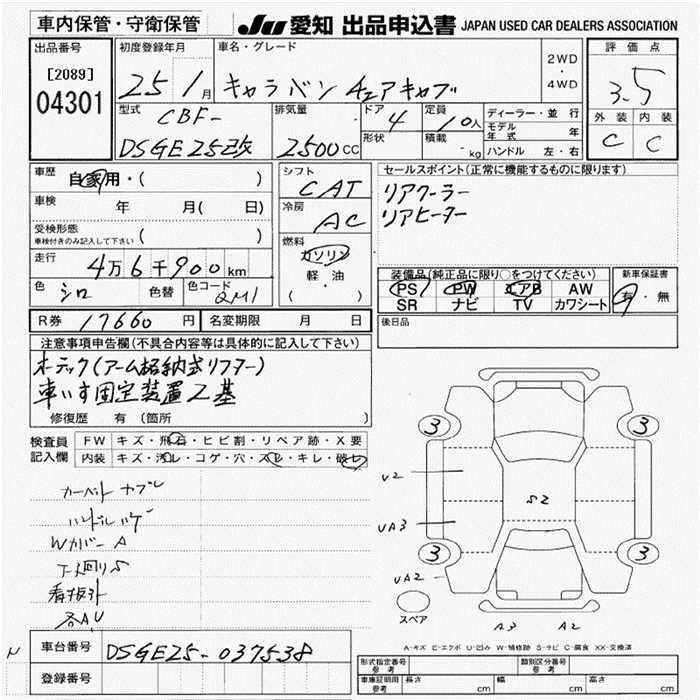 車内保管・守衛保管
JU 愛知 出品申込書 JAPAN USED CAR DEALERS ASSOCIATION
出品番号
[2089]
04301
初度登録年月
25 1月
車名・グレード
キャラバン
2WD
・
4WD
評価点
3.5
外装 内装
C C
型式
CBF-
DSGE25改
排気量
2500cc
ドア
4
定員
10人
形状
積載
kg
ディーラー・並行
モデル年式 年
ハンドル 左・右
車歴 自家用・( )
車検 年 月( 日)
受検形態
車検付きのみ記入して下さい ( )
走行 4万6千900km
色 シロ 色替 色コード QM1
シフト
CAT
冷房
AC
燃料
ガソリン
軽・油
( )
セールスポイント(正常に機能するものに限ります)
リアクーラー
リアヒーター
装備品(純正品に限り○をつけてください)
PS PW エアB AW
SR ナビ TV カワシート
新車保証書
有・無
R券 17660円 名変期限 月 日
後日品
注意事項申告欄(不具合内容等は具体的に記入して下さい)
オーテック(アーム格納式リフター)
車いす固定装置2基
修復歴 有(箇所 )
検査員記入欄
FW キズ・飛石・ヒビ割・リペア跡・X要
内装 キズ・汚レ・コゲ・穴・スレ・キレ・破レ
カーペット
ハンドルハゲ
WカバーA
下廻りS
看板引
各AU
3 3
U2
S2
UA3
3 3
UA2
スペア
A3 A2
A-キズ E-エクボ U-凹み W-補修跡 S-サビ C-腐食 XX-交換済
N
車台番号 DSGE25-037538
登録番号
形式指定番号 参考
類別区分番号 参考
車庫証明用 参考 長さ cm 幅 cm 高さ cm